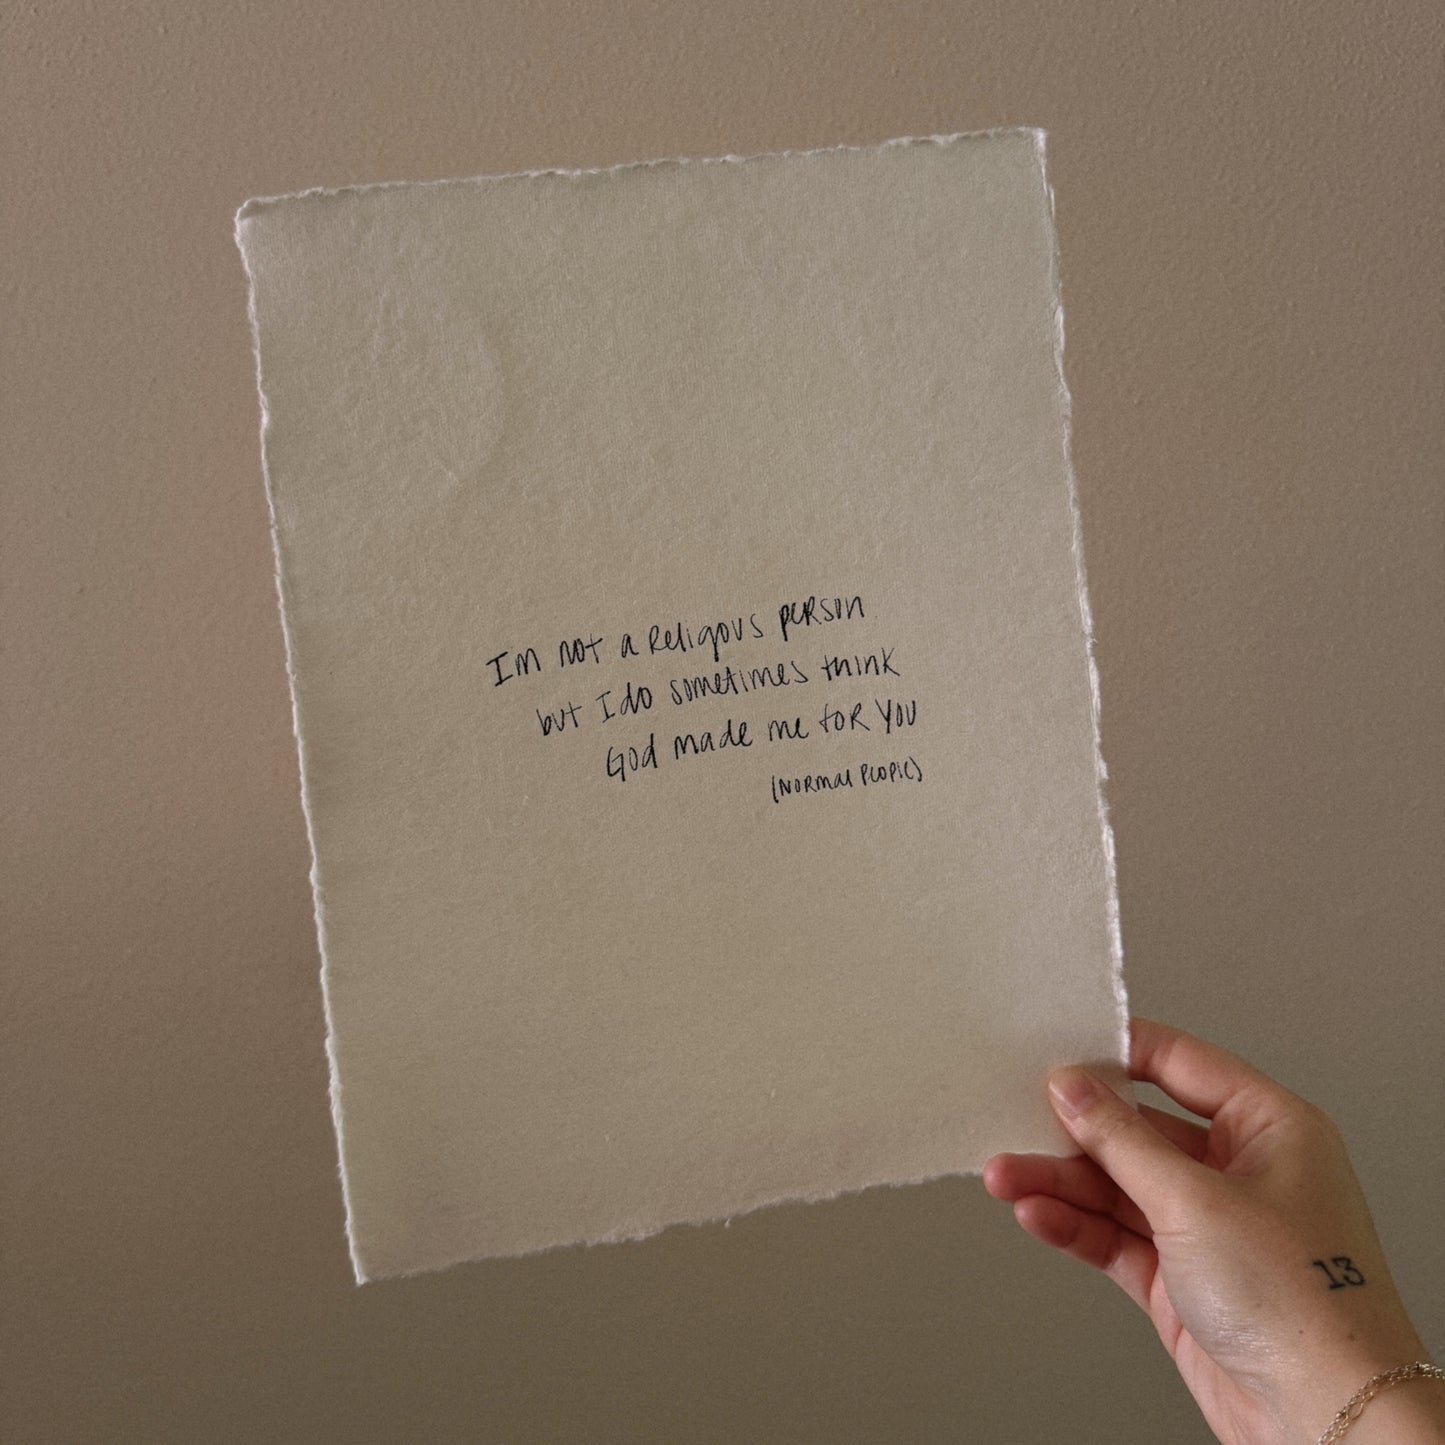 Im not a religous person
but I do sometimes think
God made me for you
(Normal People)
13